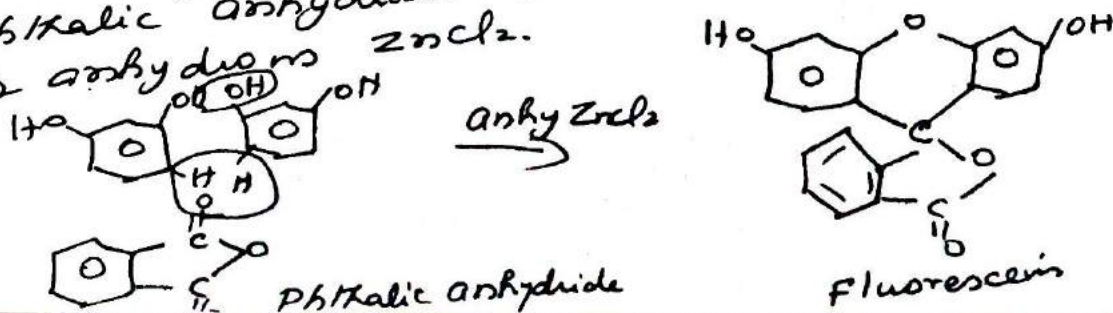 phthalic anhydride
anhydrous ZnCl2.
HO OH OH OH
H H
O
C O
C
Phthalic anhydride
anhy ZnCl2
HO O OH
C O
C
O
Fluorescein